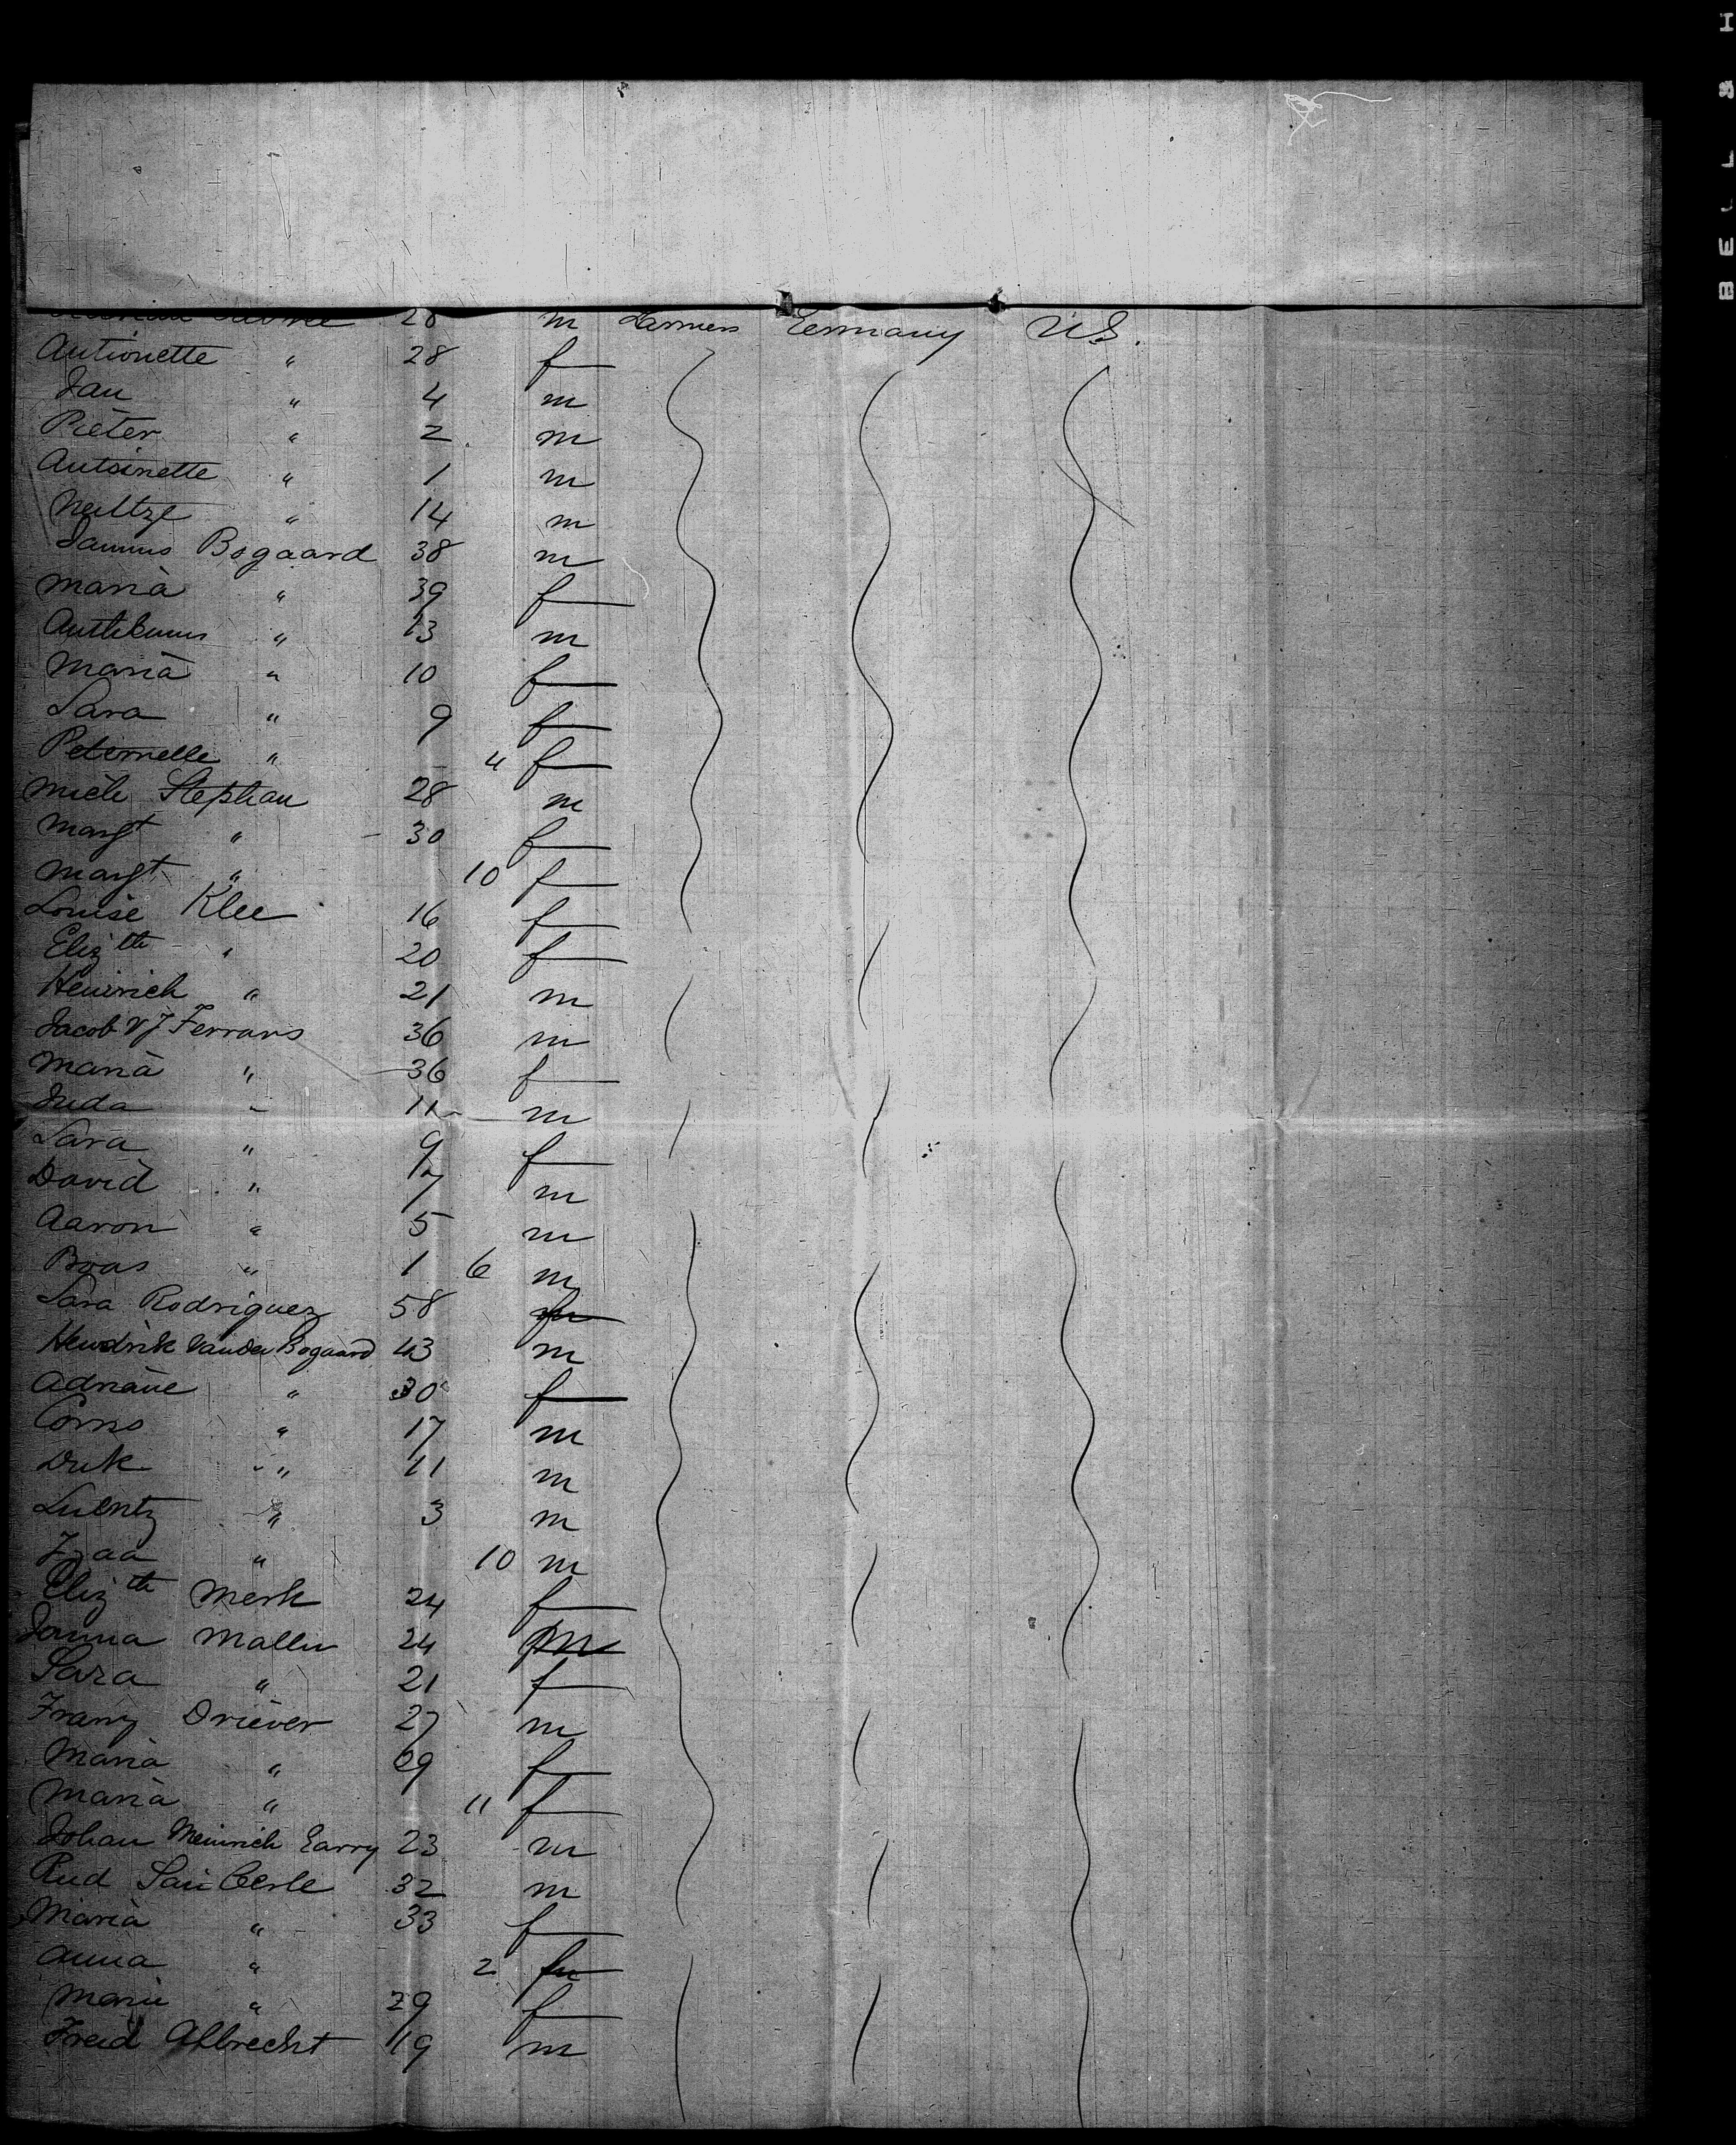 28 m Farmers Germany U.S.
Antionette " 28 f
Jan " 4 m
Pieter " 2 m
Antoinette " 1 m
Neeltze " 14 m
Bogaard 38 m
Maria " 39 f
" 13 m
Maria " 10 f
Sara " 9 f
Peternelle " 4 f
Mich Stephan 28 m
Margt " 30 f
Margt " 10 f
Louise Klee 16 f
Elizth " 20 f
Heinrich " 21 m
Jacob V J Ferrars 36 m
Maria " 36 f
Juda " 11 m
Sara " 9 f
David " 7 m
Aaron " 5 m
Boas " 1 6 m
Sara Rodriguez 58
Hendrik Vander Bogaard 43 m
Adriane " 30 f
Corns " 17 m
Dirk " 11 m
" 3 m
" 10 m
Elizth Merk 24 f
24
Sara " 21 f
Franz Driever 27 m
Maria " 29 f
Maria " 11 f
Johan Meinrich 23 m
Rud 32 m
Maria " 33 f
Anna " 2
Marie " 29 f
Freid Albrecht 19 m
BELL &